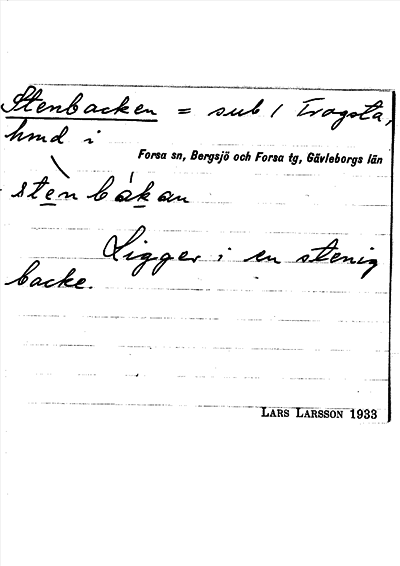 Stenbacken = sub / Trogsta,
hmd i
Forsa sn, Bergsjö och Forsa tg, Gävleborgs län
stèn bákan
Ligger i en stenig
backe.
LARS LARSSON 1933